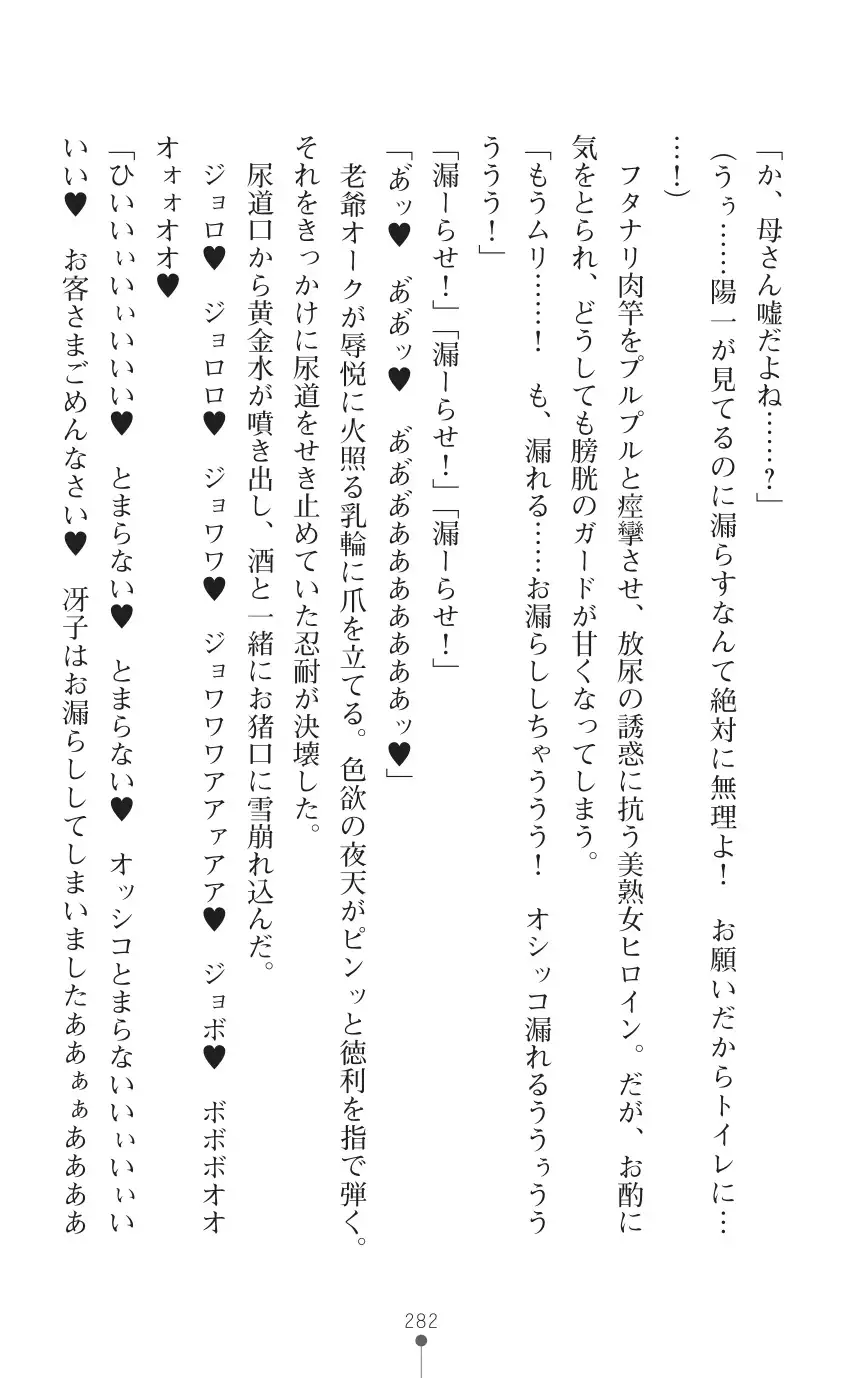 「か、母さん嘘だよね……?」
(うぅ……陽一が見てるのに漏らすなんて絶対に無理よ! お願いだからトイレに…
…!)
フタナリ肉竿をプルプルと痙攣させ、放尿の誘惑に抗う美熟女ヒロイン。だが、お酌に
気をとられ、どうしても膀胱のガードが甘くなってしまう。
「もうムリ……! も、漏れる……お漏らししちゃううう! オシッコ漏れるううぅうう
ううう!」
「漏ーらせ!」「漏ーらせ!」「漏ーらせ!」
「あ゙ッ♥ あ゙あ゙ッ♥ あ゙あ゙あ゙あああああああッ♥」
老爺オークが辱悦に火照る乳輪に爪を立てる。色欲の夜天がピンッと徳利を指で弾く。
それをきっかけに尿道をせき止めていた忍耐が決壊した。
尿道口から黄金水が噴き出し、酒と一緒にお猪口に雪崩れ込んだ。
ジョロ♥ ジョロロ♥ ジョワワ♥ ジョワワワアアァアア♥ ジョボ♥ ボボボオオ
オォォオオ♥
「ひいいぃいぃいいい♥ とまらない♥ とまらない♥ オッシコとまらないいぃいぃい
いい♥ お客さまごめんなさい♥ 冴子はお漏らししてしまいましたああぁぁああああ
282